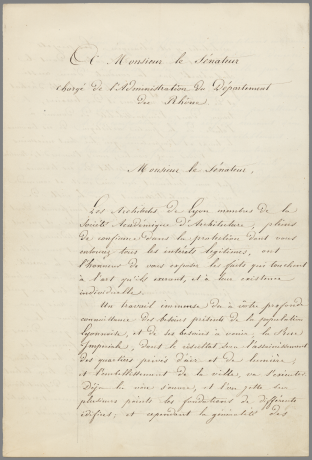 A Monsieur le Sénateur
Chargé de l'Administration du Département
du Rhône
Monsieur le Sénateur,
Les Architectes de Lyon membres de la
Société Académique d'Architecture, pleins
de confiance dans la protection dont vous
entourez tous les intérêts légitimes, ont
l'honneur de vous exposer les faits qui touchent
à l'art qu'ils exercent, et à leur existence
individuelle.
Un travail immense dû à votre profonde
connaissance des besoins présents de la population
Lyonnaise, et de ses besoins à venir, la Rue
Impériale, dont le résultat sera l'assainissement
des quartiers privés d'air et de lumière,
et l'embellissement de la ville, va s'exécuter
Déjà la voie s'ouvre, et l'on jette sur
plusieurs points les fondations de différents
édifices; et cependant la généralité des